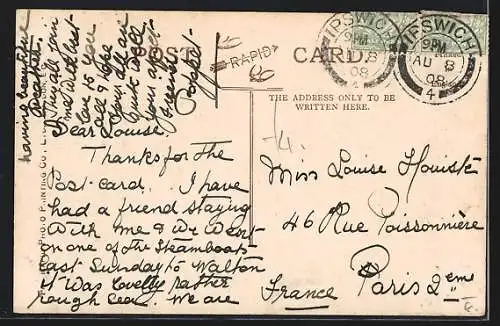 POST CARD.
RAPID
THE ADDRESS ONLY TO BE
WRITTEN HERE.
IPSWICH
9 PM
AU 8
08
4
IPSWICH
9 PM
AU 8
08
4
Dear Louise,
Thanks for the
Post card. I have
had a friend staying
with me & we went
on one of the Steamboats
last Sunday to Walton
it was lovely rather
rough sea. We are
having
weather
all join
with best
love to you
all & hope
your
quite well
your
friend
Miss Louise
46 Rue Poissonnière
Paris 2eme
France